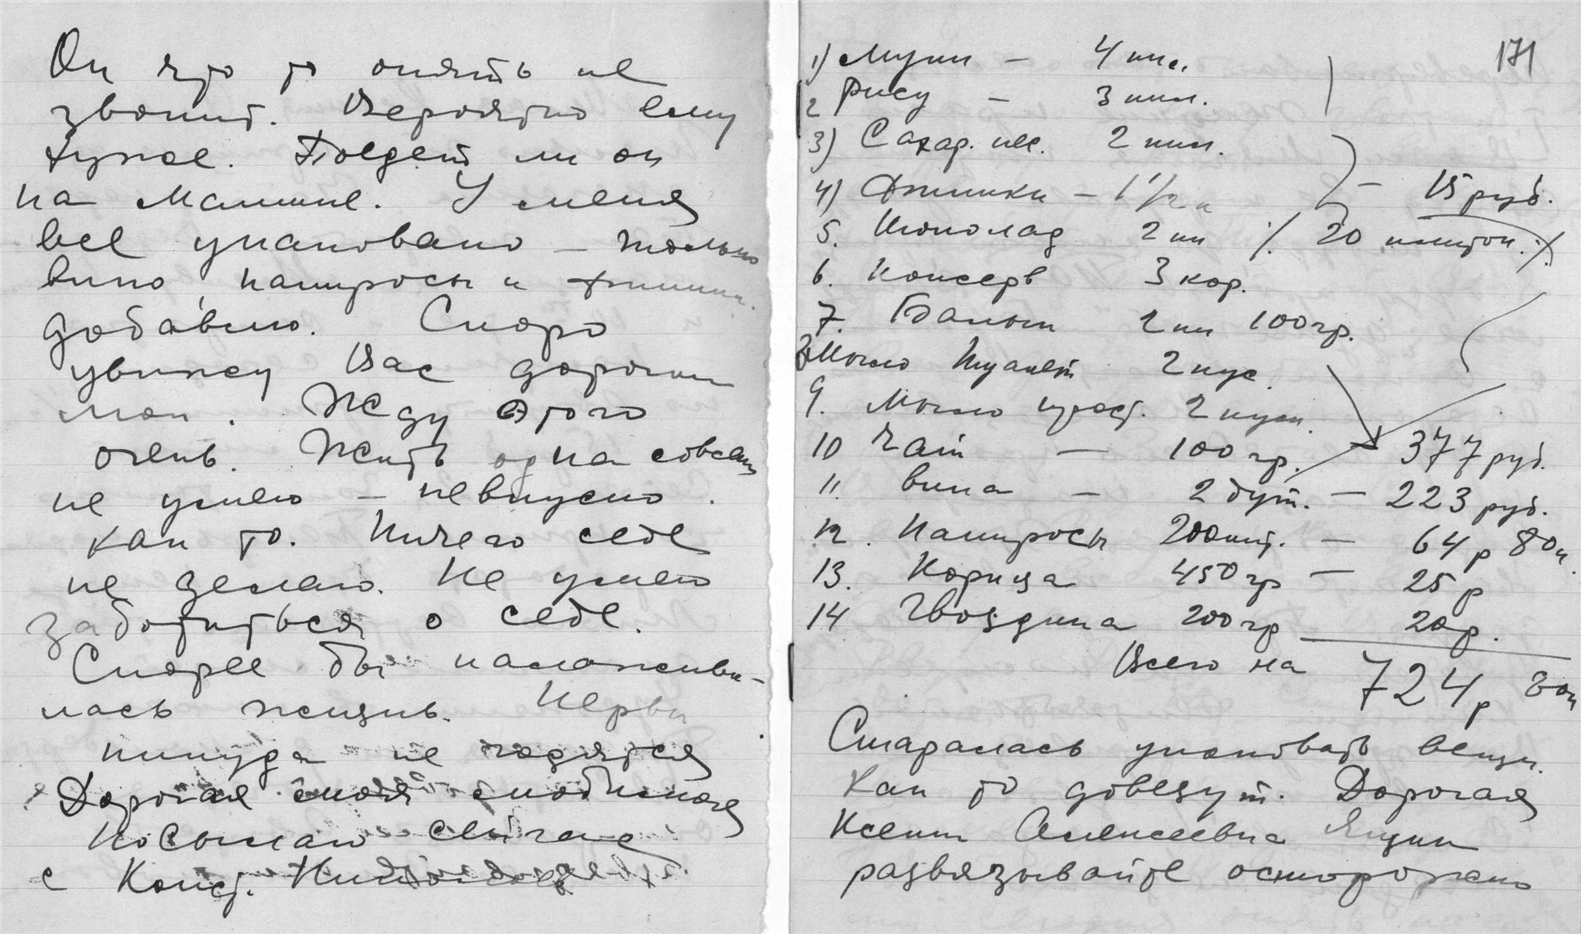 Он что то опять не
звонит. Вероятно ему
хуже. Поедет ли он
на машине. У меня
все упаковано – только
вино, папиросы и
добавлю. Скоро
увижу Вас дорогая
моя. Жду этого
очень. Жить одна совсем
не умею – невкусно
как то. Ничего себе
не делаю. Не умею
заботиться о себе.
Скорее бы налажива-
лась жизнь. Нервы
никуда не годятся
Дорогая моя
посылаю
с Конст.
171
1) Муки – 4 кил.
2 Рису – 3 кил.
3) Сахар. пес. 2 кил.
4) – 1 1/2 к – 15 руб.
5. Шоколад 2 кил ./. 20 плиток ./.
6. Консерв 3 кор.
7. 2 кил 100 гр.
8 Мыло туалет 2 кус.
9. Мыло прост. 2 куск.
10 Чай – 100 гр. 377 руб.
11. Вина – 2 бут. – 223 руб.
12. Папиросы 200 шт. – 64 р 80 к.
13. Корица 450 гр – 25 р
14 Гвоздика 200 гр 20 р.
Всего на 724 р 80 к
Старалась упаковать вещи.
Как то довезут. Дорогая
Ксения Алексеевна Ящик
развязывайте осторожно